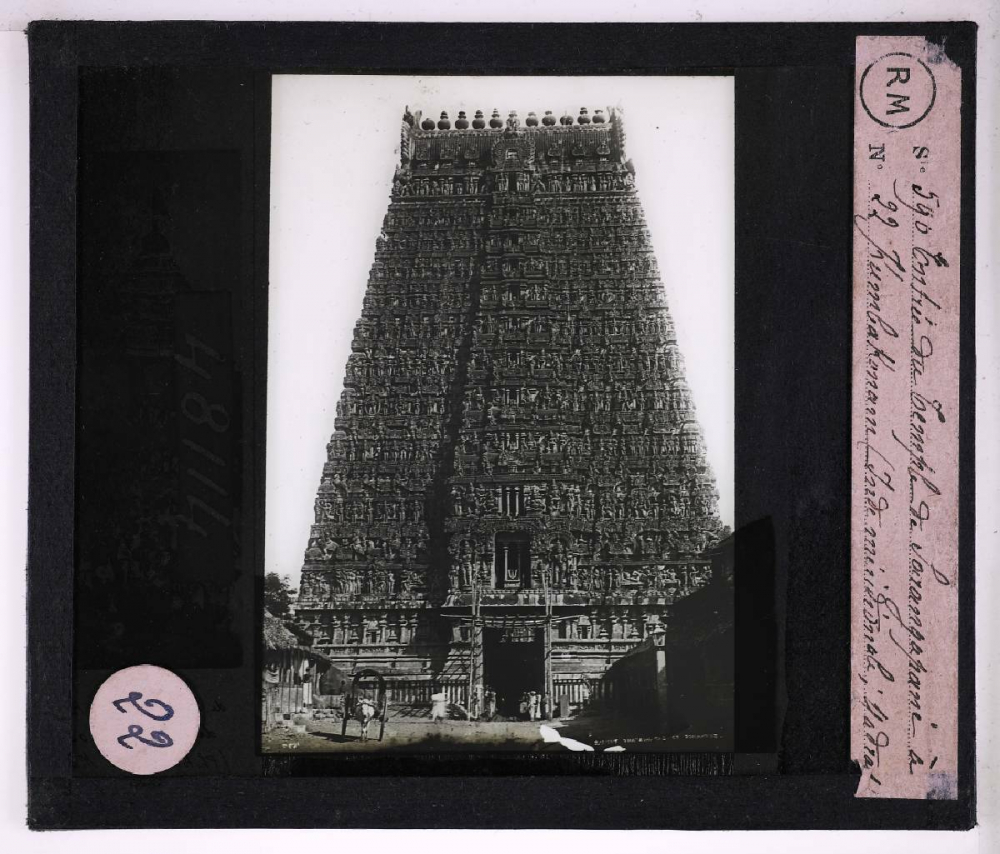 RM
Sie 590 Entrée du temple de Sarangapani à
No 22 Kumbakonam (Inde méridionale; Madras)
22
48114